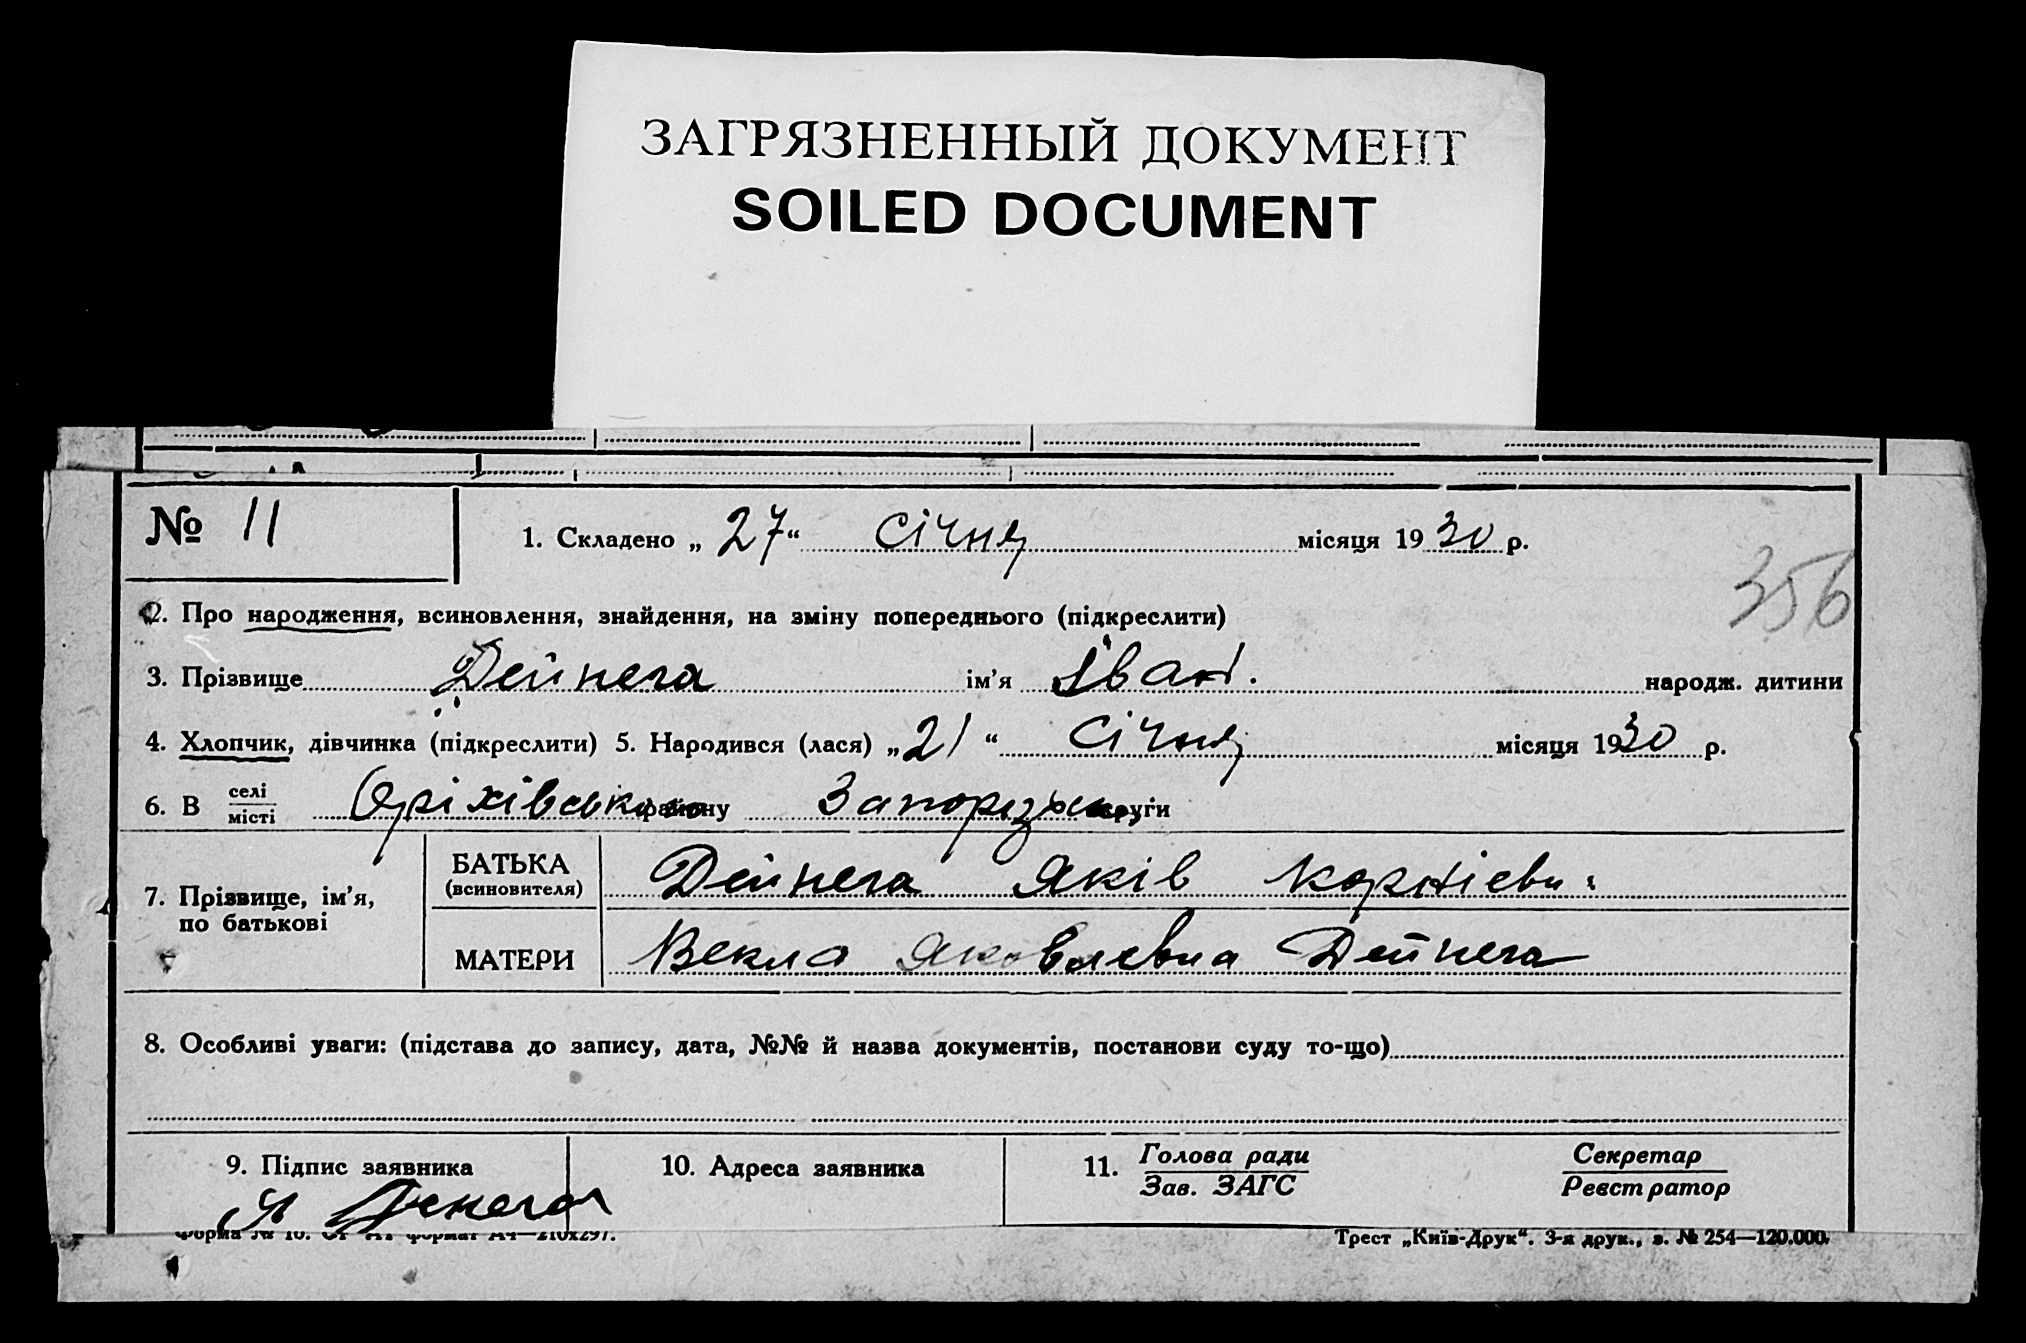 ЗАГРЯЗНЕННЫЙ ДОКУМЕНТ
SOILED DOCUMENT
№ 11
1. Складено „27“ Січня місяця 1930 р.
356
2. Про народження, всиновлення, знайдення, на зміну попереднього (підкреслити)
3. Прізвище Дейнега ім’я Іван. народж. дитини
4. Хлопчик, дівчинка (підкреслити) 5. Народився (лася) „21“ Січня місяця 1930 р.
6. В селі
місті Оріхівського району Запорізьк округи
7. Прізвище, ім’я, по батькові
БАТЬКА (всиновителя) Дейнега Яків Корнієвич
МАТЕРИ Векла Яковлевна Дейнега
8. Особливі уваги: (підстава до запису, дата, №№ й назва документів, постанови суду то-що)
9. Підпис заявника
10. Адреса заявника
11. Голова ради
Зав. ЗАГС
Секретар
Реєстратор
Я Денега
Форма № 10. формат А4—210х297.
Трест „Київ-Друк“. 3-я друк., з. № 254—120.000.